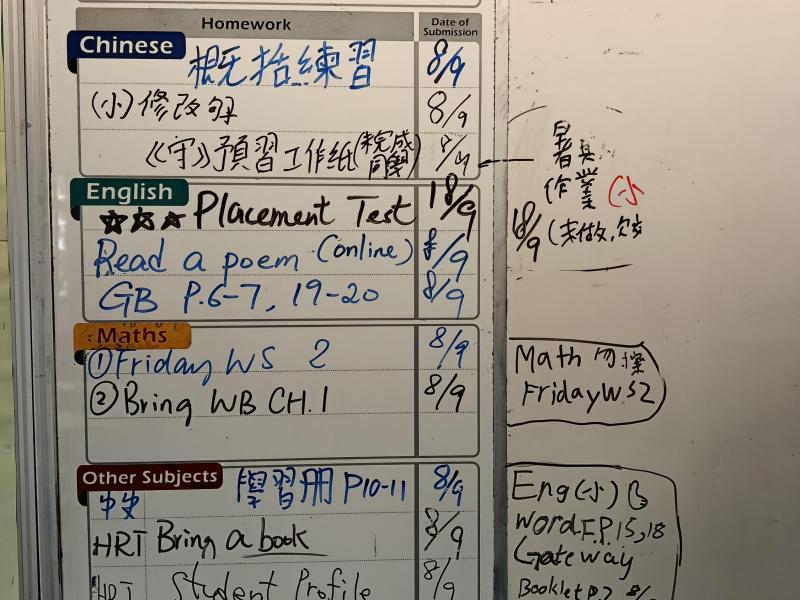 Homework
Date of Submission
Chinese
概括練習 8/9
(小)修改句 8/9
《守》預習工作紙(未完成同學)
English
☆☆★ Placement Test 18/9
Read a poem (online) 8/9
GB P.6-7, 19-20 8/9
Maths
①Friday WS 2 8/9
②Bring WB CH.1 8/9
Other Subjects
中史 學習冊 P10-11 8/9
HRT Bring a book 8/9
HRT Student Profile 8/9
暑其
作業 (小
18/9 (未做,
Math 勿擦
Friday WS2
Eng (小)
Word F.P.15,18
Gateway
Booklet P.2